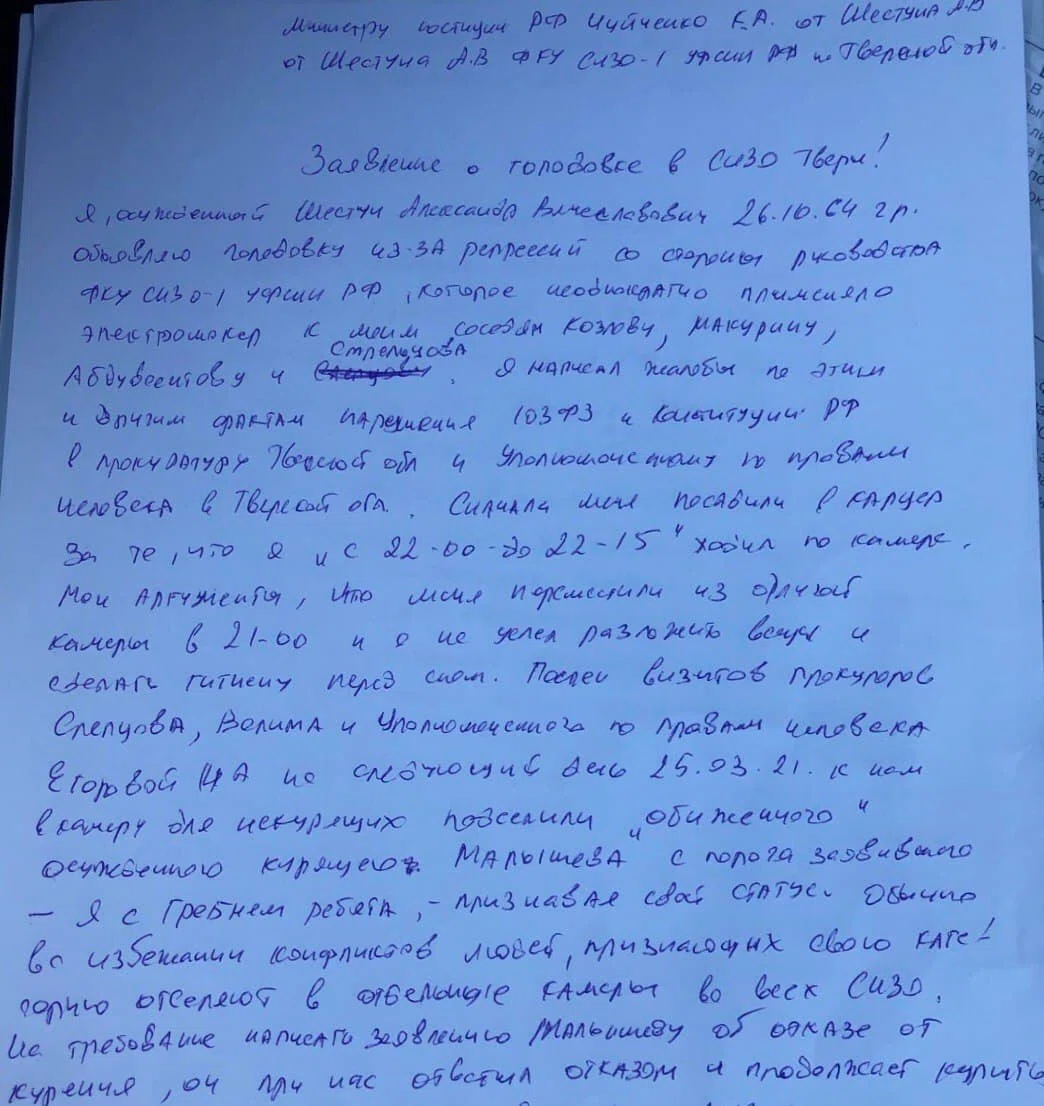 Министру юстиции РФ Чуйченко К.А. от Шестуна А.В
от Шестуна А.В ФКУ СИЗО-1 УФСИН РФ по Тверской обл.
Заявление о голодовке в СИЗО Твери!
Я, осужденный Шестун Александр Вячеславович 26.10.64 г р.
объявляю голодовку из-за репрессий со стороны руководства
ФКУ СИЗО-1 УФСИН РФ, которое неоднократно применяло
электрошокер к моим соседям Козлову, Макурину,
Стрельцова
Абдувоситову и . Я написал жалобы по этим
и другим фактам нарушения 103 ФЗ и Конституции РФ
в прокуратуру Тверской обл и Уполномоченному по правам
человека в Тверской обл. Сначала меня посадили в карцер
За то, что я "с 22-00-до 22-15" ходил по камере.
Мои аргументы, что меня переместили из другой
камеры в 21-00 и я не успел разложить вещи и
сделать гигиену перед сном. После визитов прокуроров
Слепцова, Волима и Уполномоченного по правам человека
Егоровой НА на следующий день 25.03.21. к нам
в камеру для некурящих подселили "обиженного"
осужденного курящего Малышева с порога заявившего
- Я с Гребнем ребята, - признавая свой статус. Обычно
во избежании конфликтов людей, признающих свою кате-
горию отселяют в отдельные камеры во всех СИЗО.
На требование написать заявлению Малышеву об отказе от
курения, он при нас ответил отказом и продолжает курить